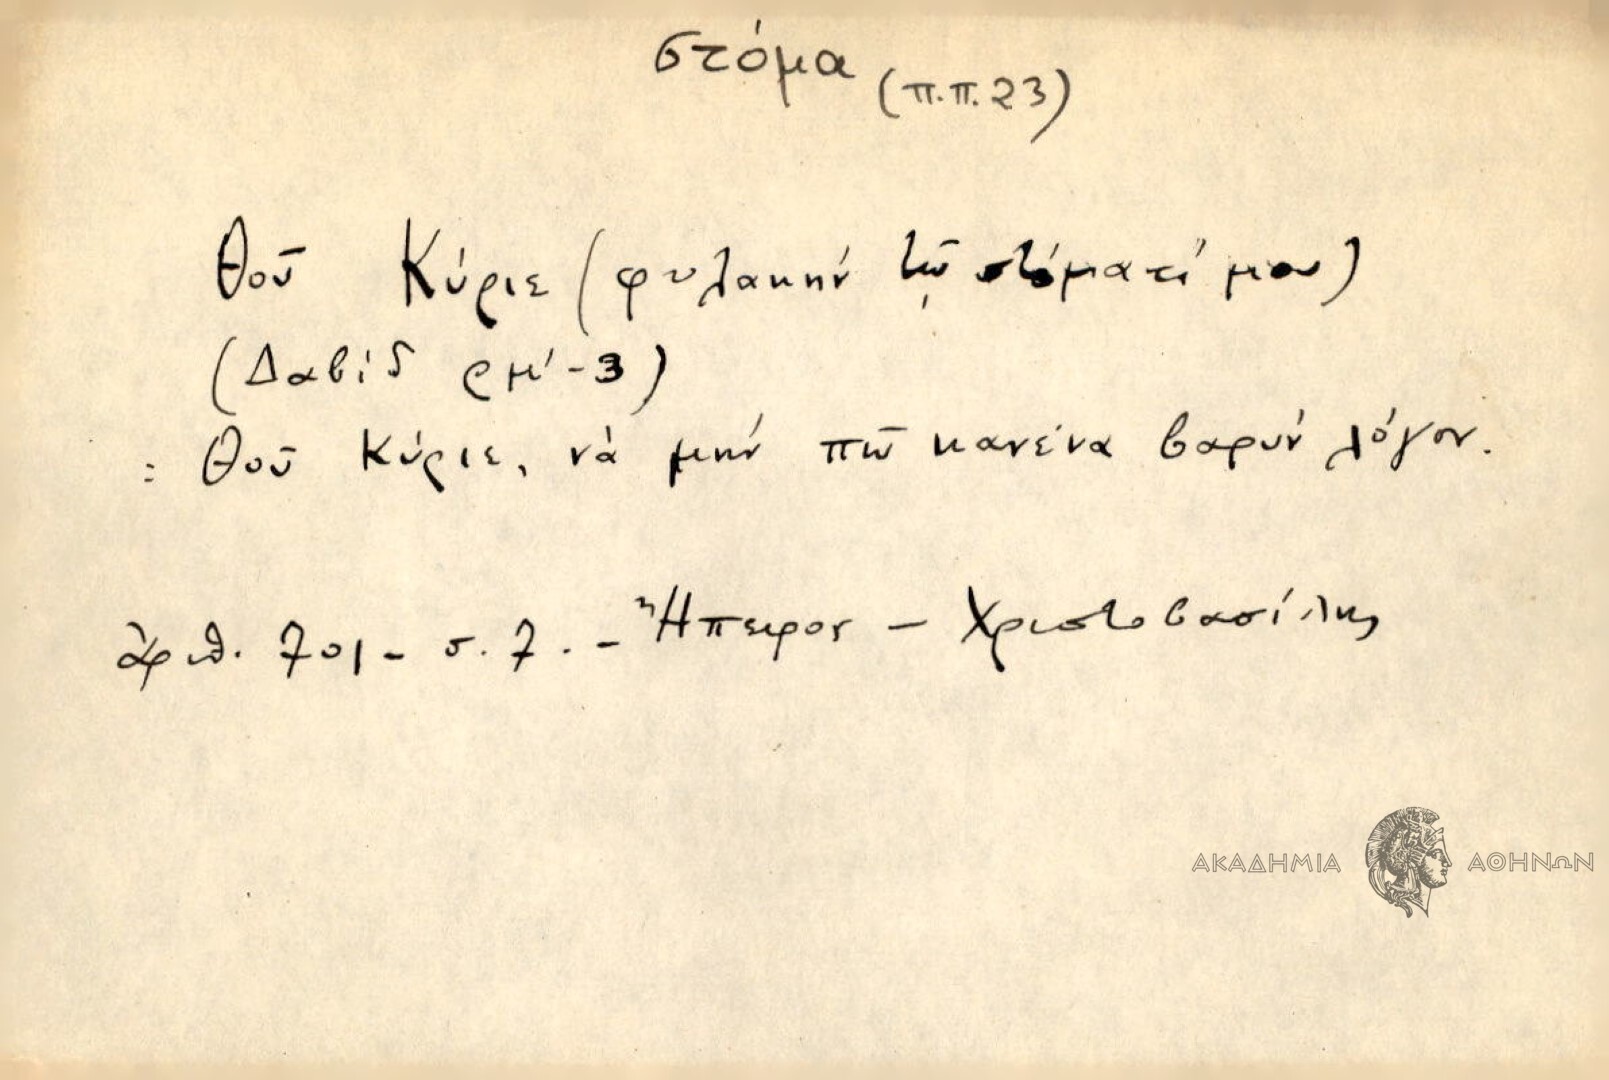 στόμα (π.π. 23)
Θοῦ Κύριε (φυλακήν τῷ στόματί μου)
(Δαβίδ ρμ'-3)
: Θοῦ Κύριε, νὰ μήν πῶ κανένα βαρύν λόγον.
ἀριθ. 701 - σ. 7. - Ἤπειρος - Χριστοβασίλης
ΑΚΑΔΗΜΙΑ ΑΘΗΝΩΝ